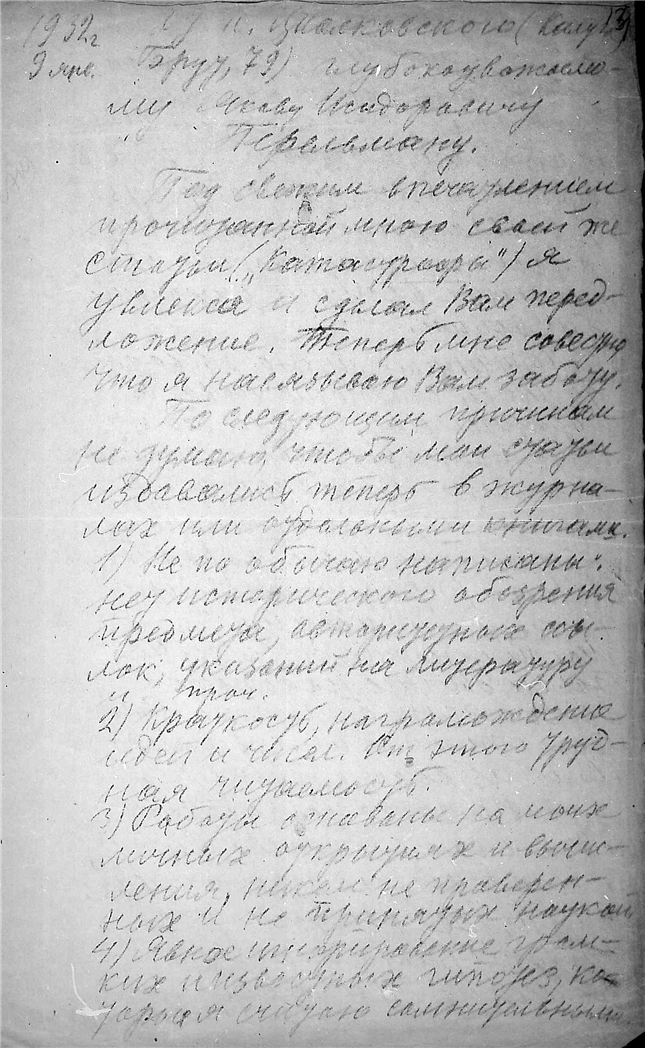 1932 г. От К. Циолковского (Калуга, 13
9 янв. Брут, 79) глубокоуважаемо-
му Якову Исидоровичу
Перельману.
Под свежим впечатлением
прочитанной мною своей же
статьи („Катастрофа“) я
увлекся и сделал Вам пред-
ложение. Теперь мне совестно,
что я навязываю Вам заботу.
По следующим причинам
не думаю, чтобы мои статьи
издавались теперь в журна-
лах или отдельными книгами.
1) Не по обычаю написаны:
нет исторического обозрения
предмета, авторитетных ссы-
лок, указаний на литературу
и проч.
2) Краткость, нагромождение
идей и чисел. От этого труд-
ная читаемость.
3) Работы основаны на моих
личных открытиях и вычис-
ления, никем не проверен-
ных и не принятых наукой
4) Явное игнорирование гром-
ких и известных гипотез, ко-
торыя я считаю сомнительными